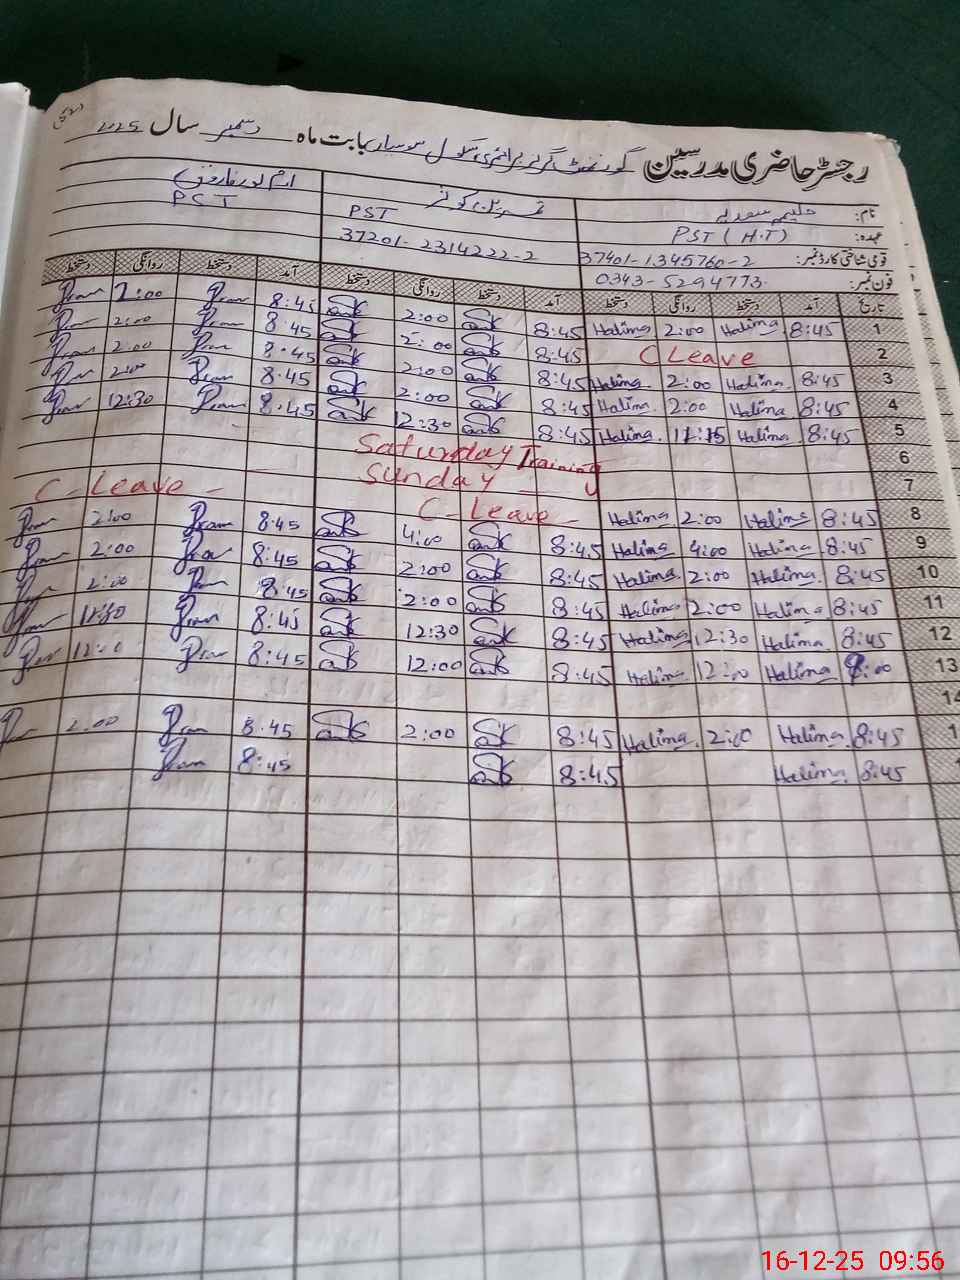 رجسٹر حاضری مدرسین گورنمنٹ گرلز پرائمری سکول بابت ماہ دسمبر سال 2025
نام: حلیمہ سعدیہ
عہدہ: PST (H.T) PST PCT
قومی شناختی کارڈ نمبر: 37401-1345760-2 37201-2314222-2
فون نمبر: 0343-5294773
تاریخ آمد دستخط روانگی دستخط آمد دستخط روانگی دستخط آمد دستخط روانگی دستخط
1 8:45 Halima 2:00 Halima 8:45 2:00 8:45 2:00
2 C Leave 8:45 2:00 8:45 2:00
3 8:45 Halima 2:00 Halima 8:45 2:00 8:45 2:00
4 8:45 Halima 2:00 Halima 8:45 2:00 8:45 2:00
5 8:45 Halima 11:15 Halima 8:45 12:30 8:45 12:30
6 Saturday Training
7 Sunday
8 8:45 Halima 2:00 Halima C-Leave C-Leave
9 8:45 Halima 4:00 Halima 8:45 4:00 8:45 2:00
10 8:45 Halima 2:00 Halima 8:45 2:00 8:45 2:00
11 8:45 Halima 2:00 Halima 8:45 2:00 8:45 2:00
12 8:45 Halima 12:30 Halima 8:45 12:30 8:45
13 Halima 12:00 Halima 8:45 12:00 8:45
14
1 8:45 Halima 2:00 Halima 8:45 2:00 8:45 2:00
8:45 Halima 8:45 8:45
16-12-25 09:56